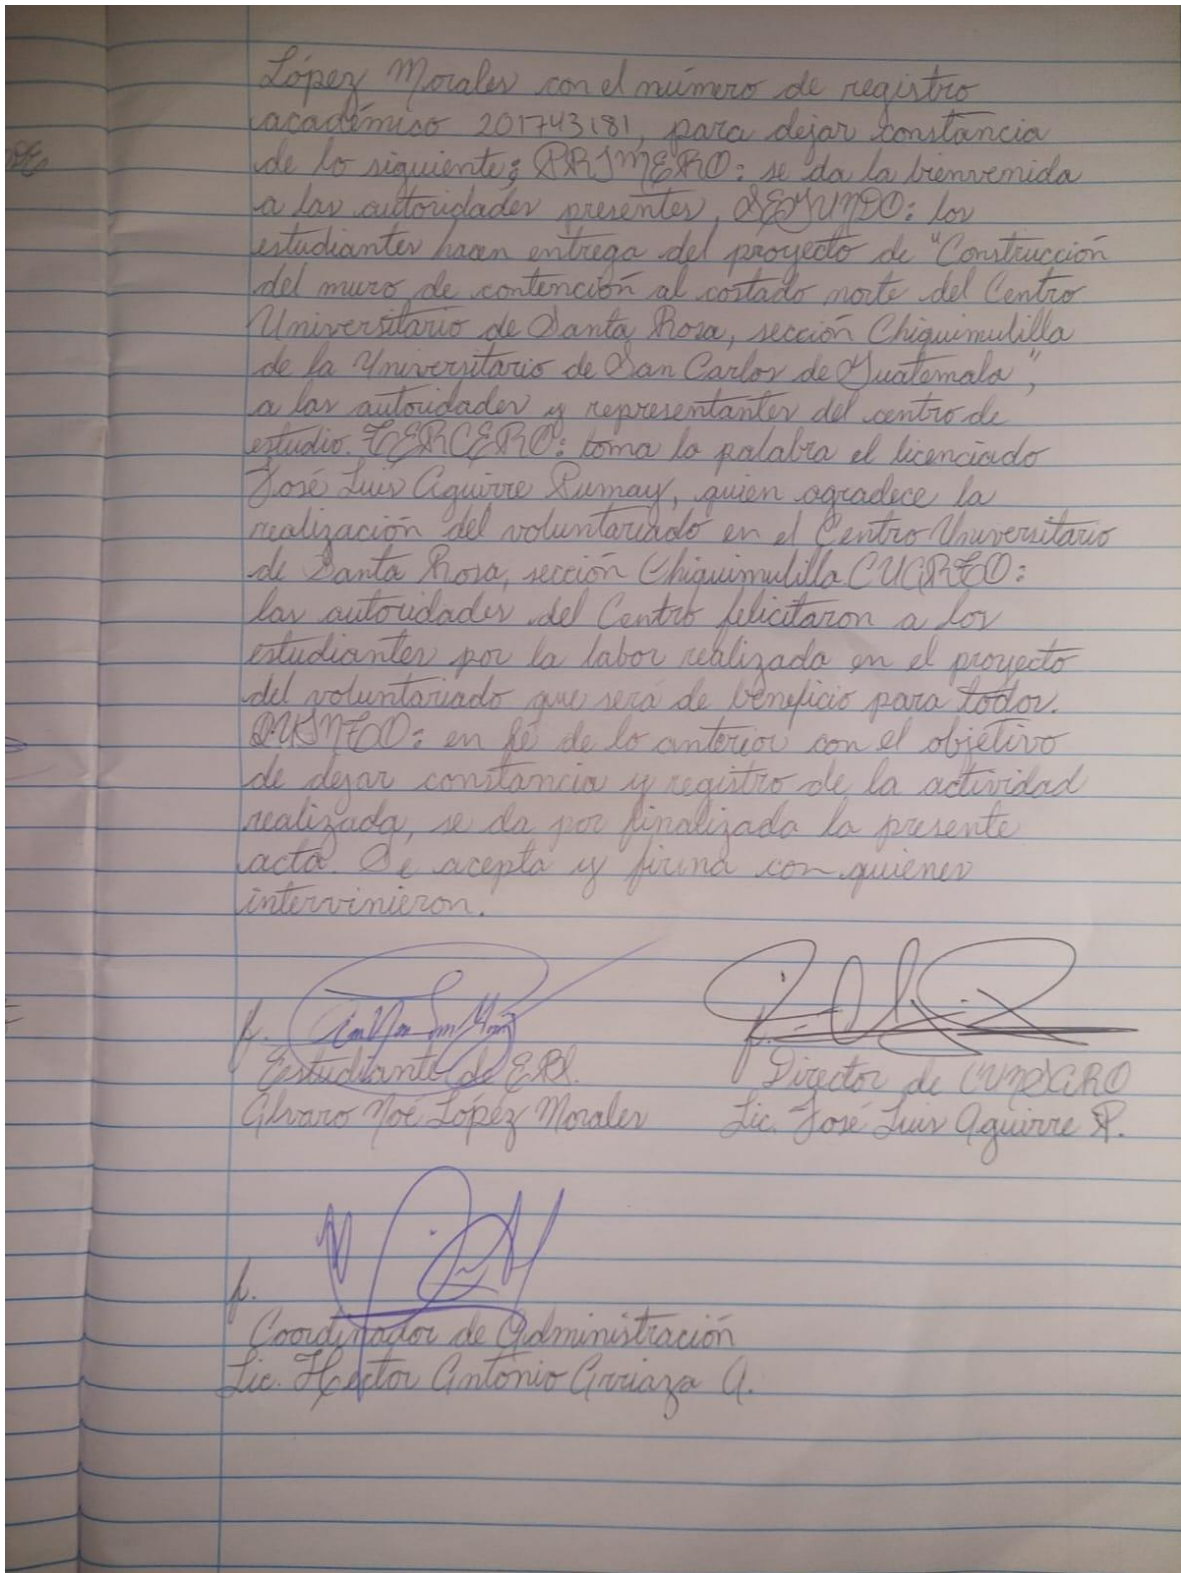 López Morales con el número de registro
académico 201743181, para dejar constancia
de lo siguiente; PRIMERO: se da la bienvenida
a las autoridades presentes, SEGUNDO: los
estudiantes hacen entrega del proyecto de "Construcción
del muro de contención al costado norte del Centro
Universitario de Santa Rosa, sección Chiquimulilla
de la Universitario de San Carlos de Guatemala",
a las autoridades y representantes del centro de
estudio. TERCERO: toma la palabra el licenciado
José Luis Aguirre Pumay, quien agradece la
realización del voluntariado en el Centro Universitario
de Santa Rosa, sección Chiquimulilla CUARTO:
las autoridades del Centro felicitaron a los
estudiantes por la labor realizada en el proyecto
del voluntariado que será de beneficio para todos.
QUINTO: en fé de lo anterior con el objetivo
de dejar constancia y registro de la actividad
realizada, se da por finalizada la presente
acta. Se acepta y firma con quienes
intervinieron.
f. f.
Estudiante de EPS. Director de CUNSARO
Álvaro Noé López Morales Lic. José Luis Aguirre P.
f.
Coordinador de Administración
Lic. Hector Antonio Arriaza A.